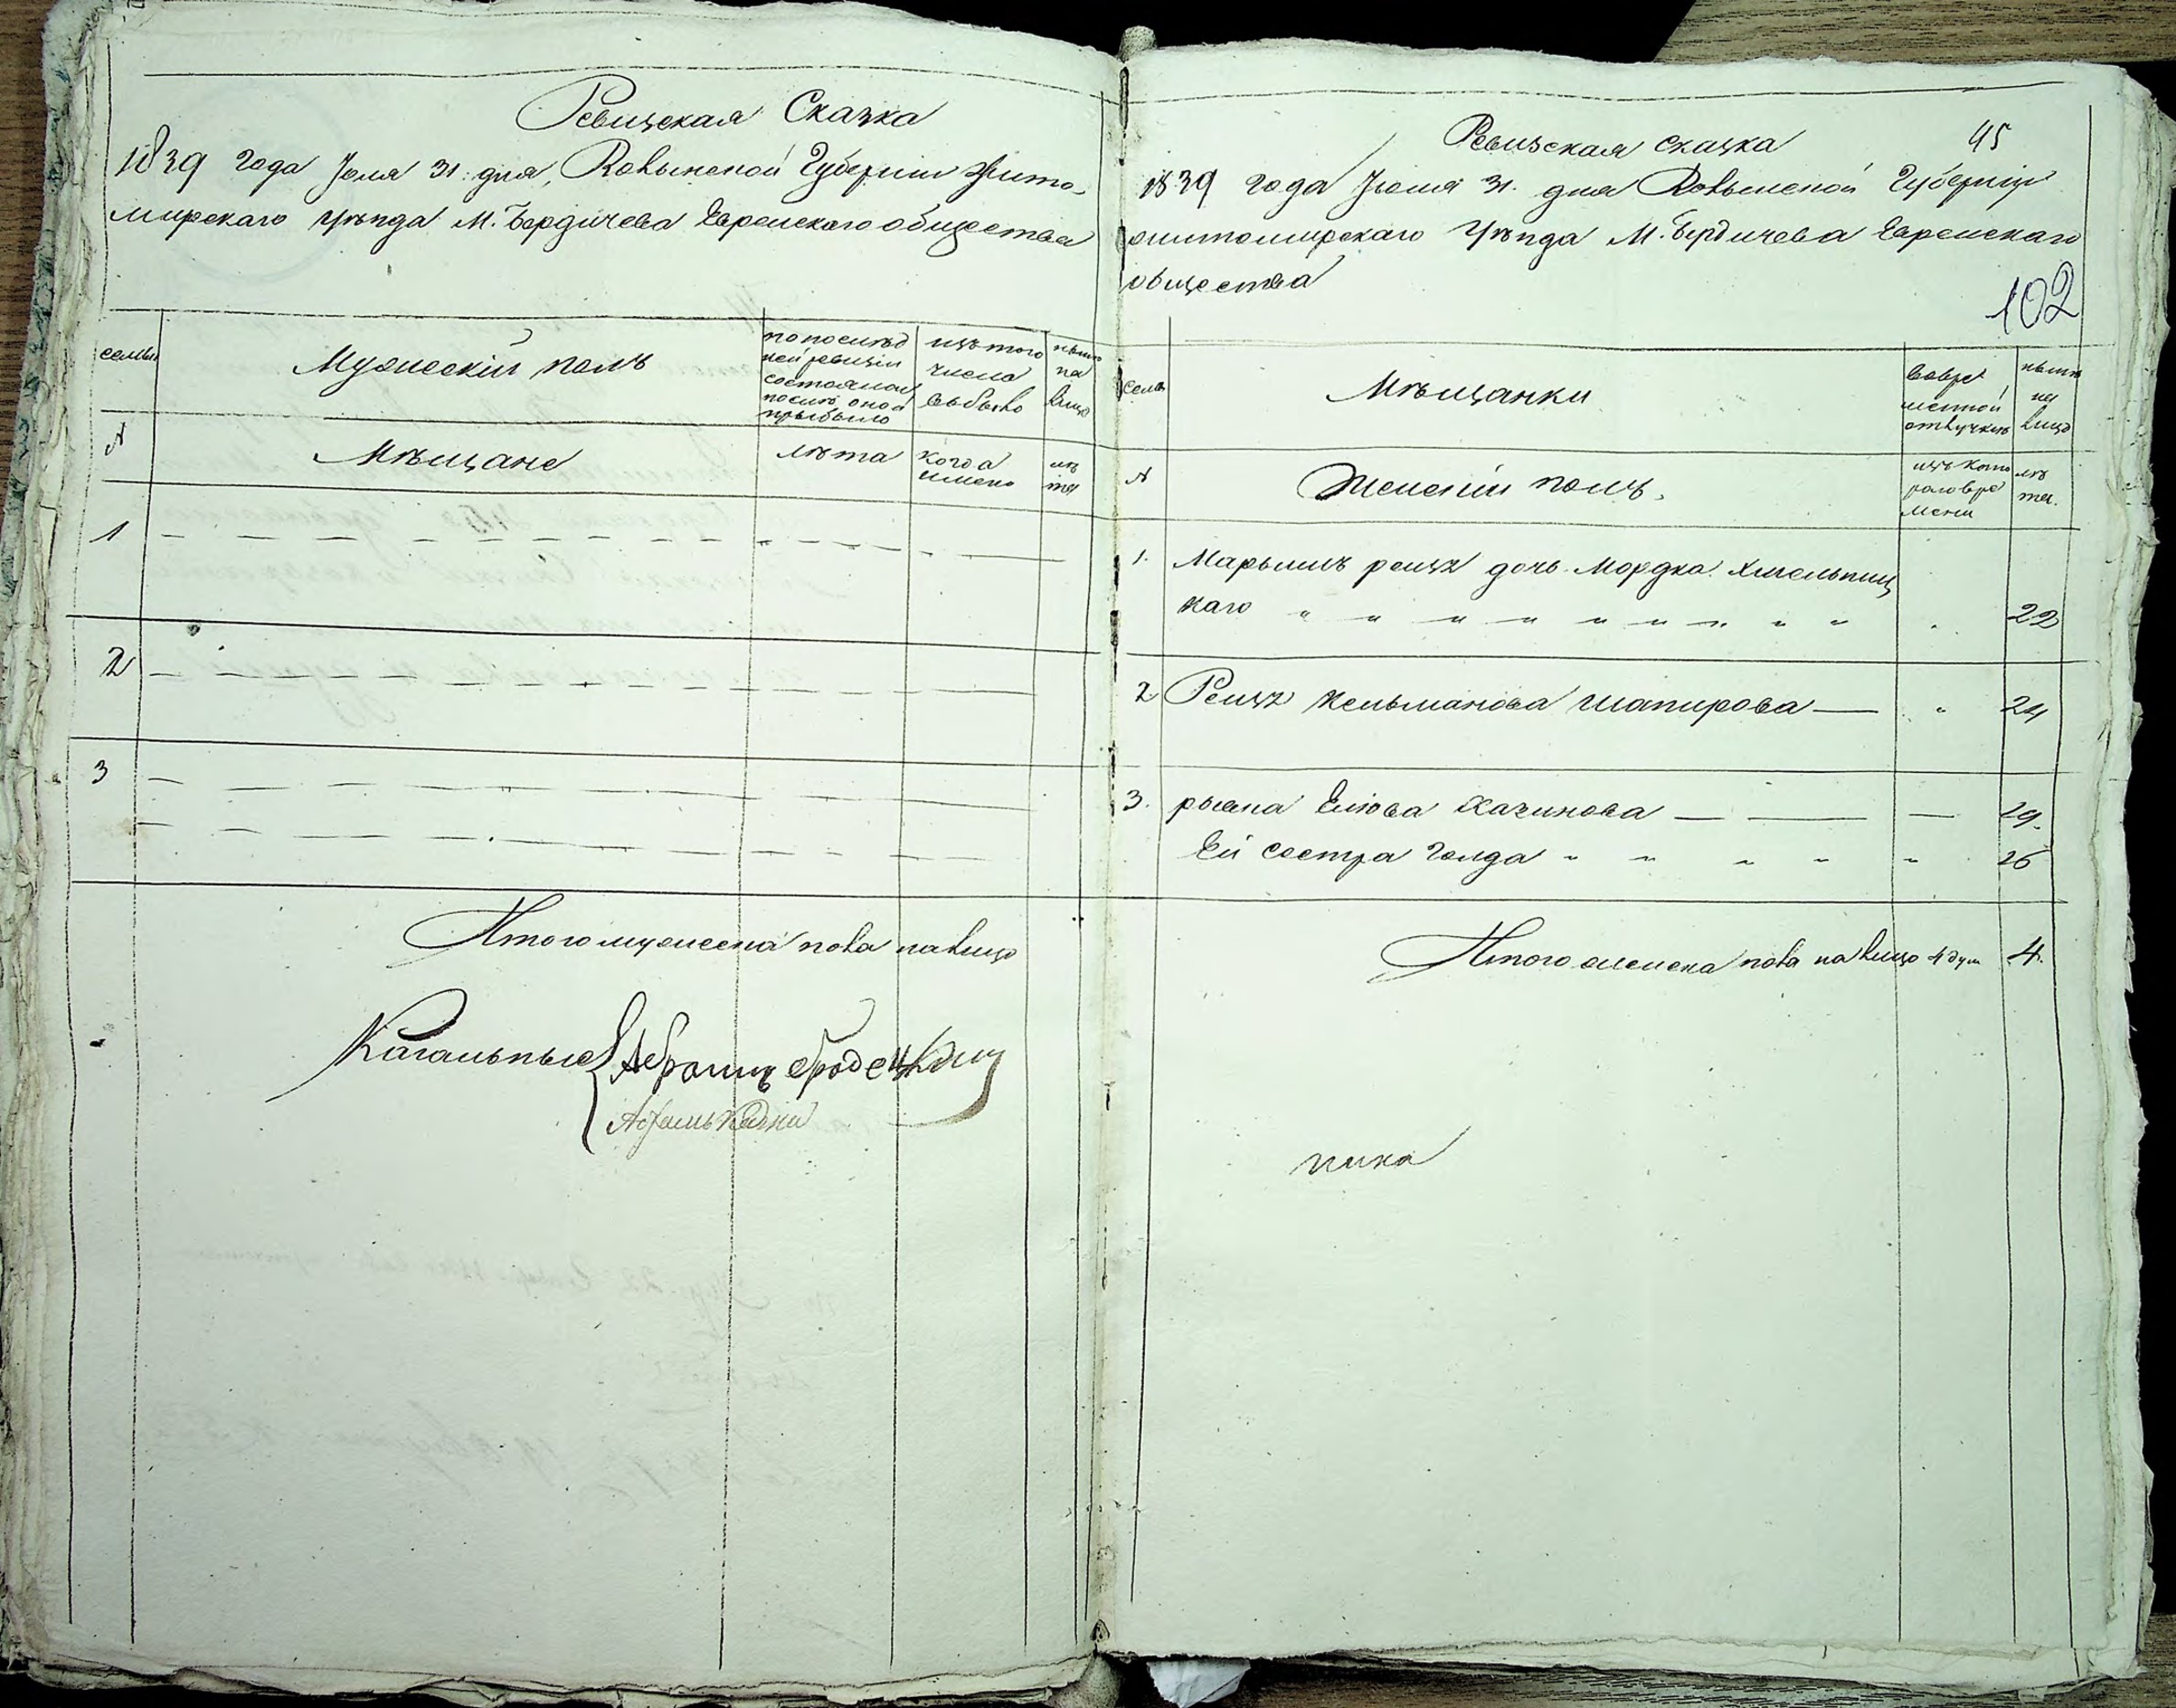 Ревизская Сказка
1839 года Июля 31. дня, Волынской Губернии Жито-
мирскаго уѣзда М. Бердичева Еврейскаго общества
семьи
Мужескій полъ
по послѣд
ней ревизіи
состояло и
послѣ оной
прибыло
изъ того
числа
выбыло
нынѣ
на
лицо
№
Мѣщане
лѣта
когда
имено
лѣ
та
1
2
3
Итого мужеска пола на лицо
Кагальные
Абрамъ Бродецкий
Ревизская сказка
45
1839 года Июля 31. дня Волынской Губерніи
Житомирскаго уѣзда М. Бердичева Еврейскаго
общества
102
семьи
Мѣщанки
во вре
менной
отлучкѣ
нынѣ
на
лицо
№
Женскій полъ.
изъ кото
раго вре
мени
лѣ
та.
1. Марьимъ рейзя дочь Мордка Хмельниц
каго 22
2 Рейзя Кельманова Шапирова 24
3. Еліова 29.
Ей сестра Голда 26
Итого женска пола на лицо 4 душ 4.